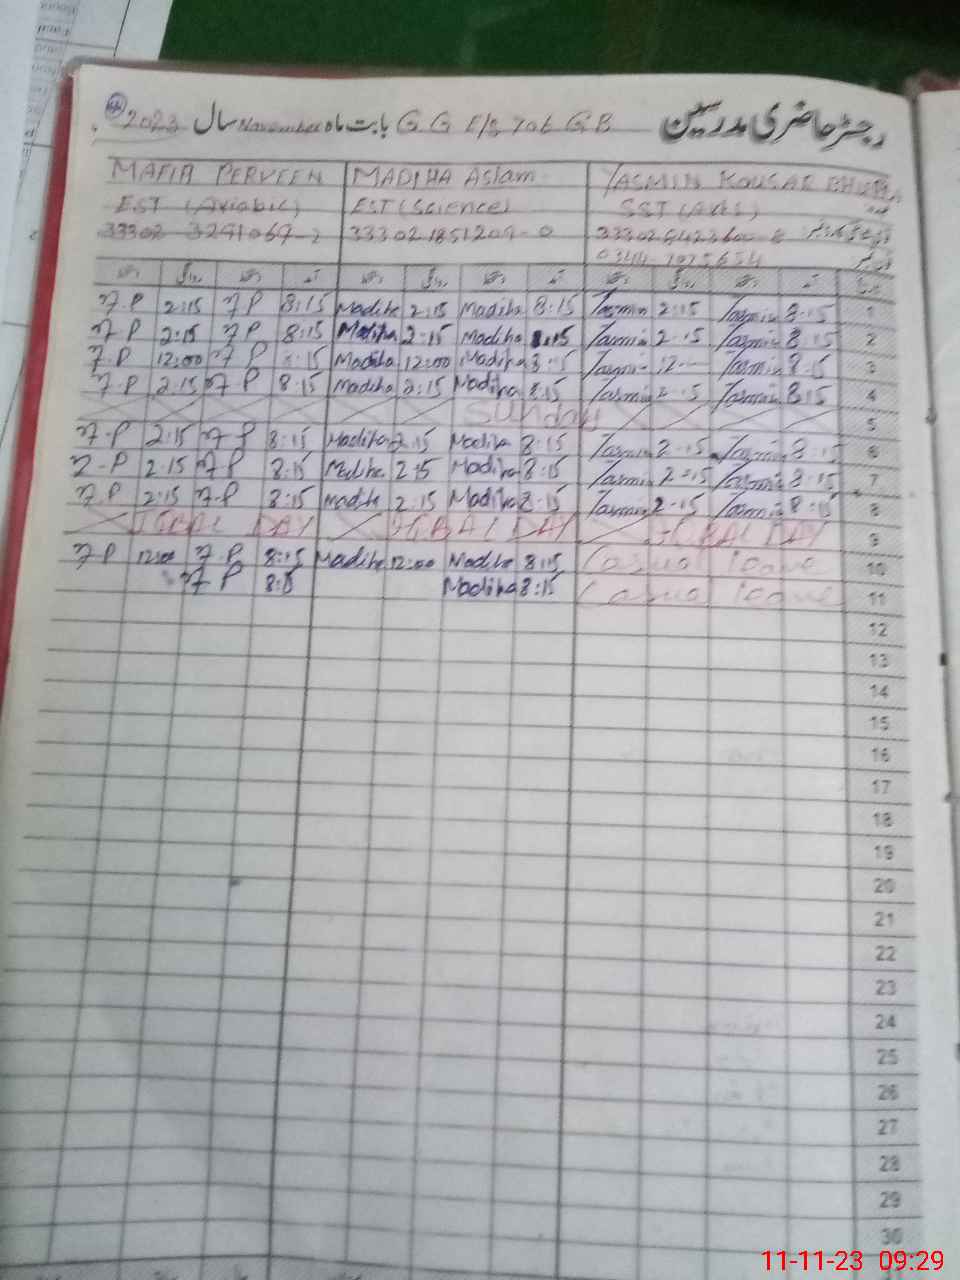 رجسٹر حاضری مدرسین G G E/S 706 G B بابت ماہ November سال 2023
MAFIA PERVEEN MADIHA Aslam YASMIN KOUSAR
EST (Arabic) EST (Science) SST (Arts)
آمد
7.P 2:15 7 P 8:15 Madiha 2:15 Madiha 8:15 Yasmin 2:15 Yasmin 8:15 1
7 P 2:15 7 P 8:15 Madiha 2:15 Madiha 8:15 Yasmin 2:15 Yasmin 8:15 2
7.P 12:00 7 P 8:15 Madiha 12:00 Madiha 8:15 Yasmin 12 Yasmin 8:15 3
7.P 2:15 7 P 8:15 Madiha 2:15 Madiha 8:15 Yasmin 2:15 Yasmin 8:15 4
Sunday 5
7.P 2:15 7 P 8:15 Madiha 2:15 Madiha 8:15 Yasmin 2:15 Yasmin 8:15 6
7.P 2:15 7 P 8:15 Madiha 2:15 Madiha 8:15 Yasmin 2:15 Yasmin 8:15 7
7.P 2:15 7.P 8:15 Madiha 2:15 Madiha 8:15 Yasmin 2:15 Yasmin 8:15 8
IQBAL DAY IQBAL DAY IQBAL DAY 9
7 P 12:00 7.P 8:15 Madiha 12:00 Madiha 8:15 Casual leave 10
7 P 8:15 Madiha 8:15 Casual leave 11
12
13
14
15
16
17
18
19
20
21
22
23
24
25
26
27
28
29
30
11-11-23 09:29